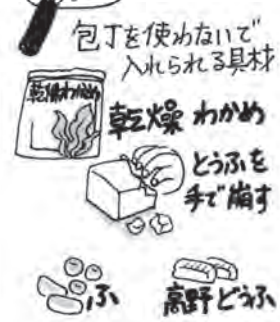 包丁を使わないで
入れられる具材
乾燥わかめ
乾燥 わかめ
とうふを
手で崩す
ふ
高野どうふ